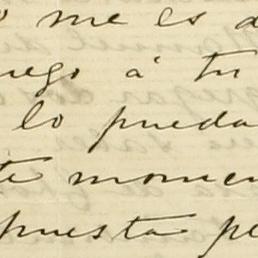 me es d
uego á tu
lo pueda
te momen
puesta pe